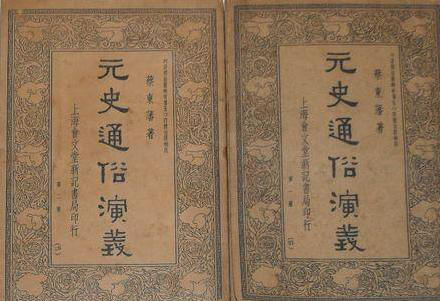 蔡東藩著
元史通俗演義
上海會文堂新記書局印行
第一冊
蔡東藩著
元史通俗演義
上海會文堂新記書局印行
第一冊